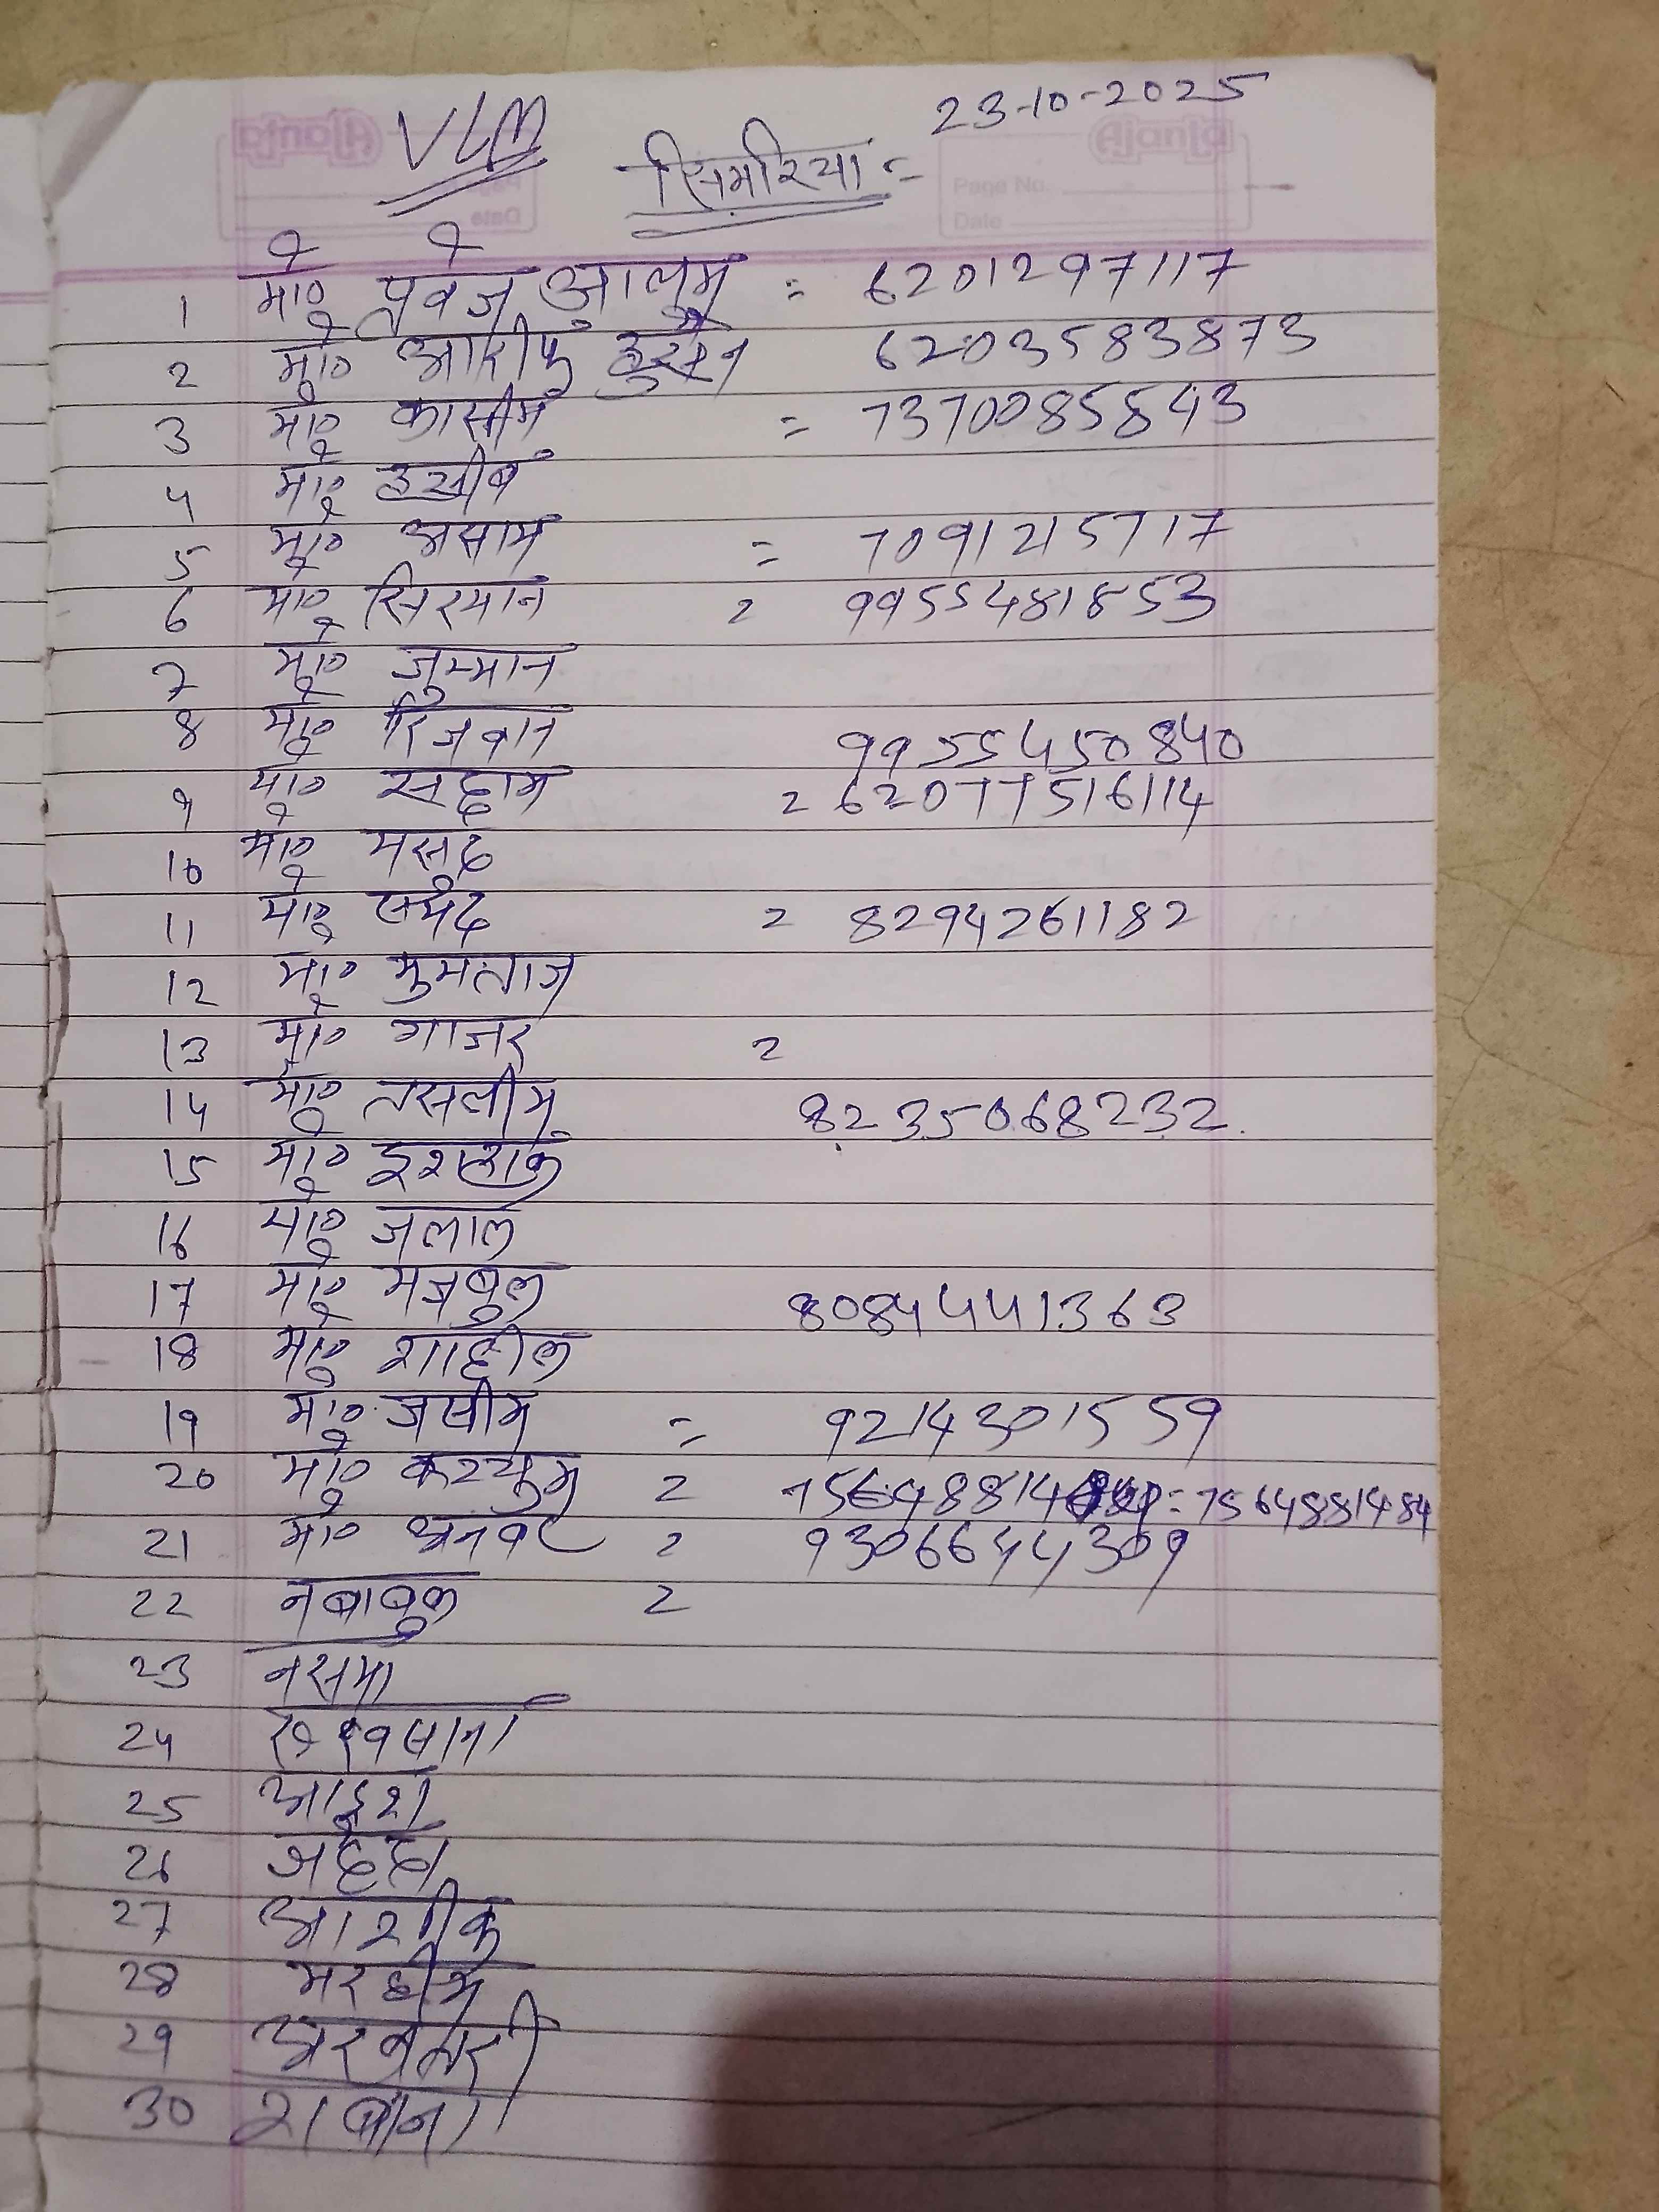 23-10-2025
VLM
सिमरिया :-
Page No.
Date
Ajanta
1 मो० प्रवेज आलम = 6201297117
2 मो० आरीफ हुसैन 6203583873
3 मो० कासीम = 7370085843
4 मो० हसीब
5 मो० असाम = 7091215717
6 मो० सिरमान = 9955481853
7 मो० जुम्मान
8 मो० रिजवान 9955450840
9 मो० सद्दाम = 62077516114
10 मो० मसुद
11 मो० समद = 8294261182
12 मो० मुमताज
13 मो० गाजर =
14 मो० तसलीम 8235068232
15 मो०
16 मो० जलाल
17 मो० मजबुल 8084441363
18 मो० शाहील
19 मो० जसीम = 9214301559
20 मो० कय्युम = 7564881484 = 7564881484
21 मो० अनवर = 9306644309
22 नबाबुल =
23 नसमा
24
25 आइशा
26
27 आशीक
28
29
30 शाबाना